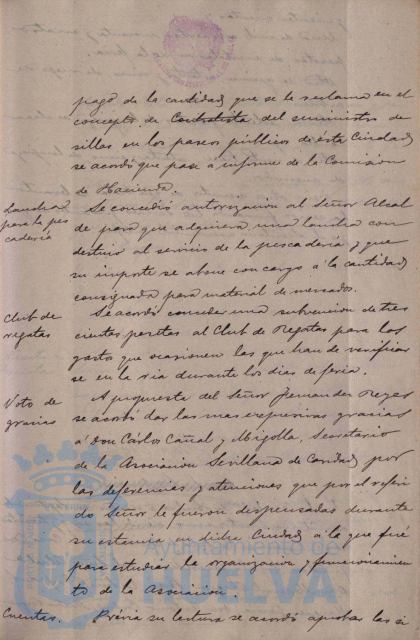 pago de la cantidad que se le reclama en el
concepto de Contratista del suministro de
sillas en los paseos públicos de ésta Ciudad,
se acordó que pase á informe de la Comisión
de Hacienda.
Lancha
para la pes
cadería
Se concedió autorización al Señor Alcal
de para que adquiera una lancha con
destino al servicio de la pescadería y que
su importe se abone con cargo á la cantidad
consignada para material de mercados.
Club de
regatas
Se acordó conceder una subvencion de tres
cientas pesetas al Club de Regatas para los
gastos que ocasionen las que han de verificar
se en la ria durante los dias de feria.
Voto de
gracias
A propuesta del Señor Fernandez Reyes
se acordó dar las mas expresivas gracias
á Don Carlos Cañal y Migolla, Secretario
de la Asociacion Sevillana de Caridad, por
las deferencias y atenciones que por el referi
do Señor le fueron dispensadas durante
su estancia en dicha Ciudad á la que fué
para estudiar la organizacion y funcionamien
to de la Asociacion.
Cuentas.
Prévia su lectura se acordó aprobar las si
Ayuntamiento de
HUELVA